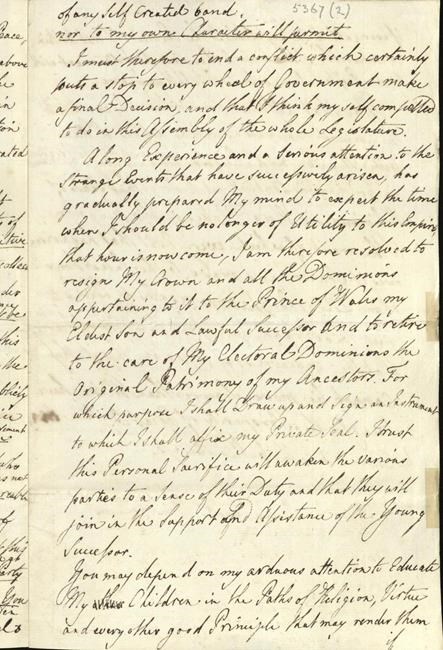 of any self created band. 5367 (2)
nor to my own Character will permit.
I must therefore to end a conflict which certainly
puts a stop to every wheel of Government make
a final Decision, and that I think my self compelled
to do in this Assembly of the whole Legislature.
A long Experience and a serious attention to the
Strange Events that have successively arisen, has
gradually prepared My mind to expect the time
when I should be no longer of Utility to this Empire
that hour is now come, I am therefore resolved to
resign My Crown and all the Dominions
appertaining to it to the Prince of Wales my
Eldest Son and Lawful Successor and to retire
to the care of My Electoral Dominions the
Original Patrimony of my Ancestors. For
which purpose I shall Draw up and Sign an Instrument
to which I shall affix my Private Seal. I trust
this Personal Sacrifice will awaken the various
parties to a sense of their Duty and that they will
join in the Support and Assistance of the Young
Successor.
You may depend on my arduous attention to Educate
My Children in the Paths of Religion, Virtue
and every other good Principle that may render them
if